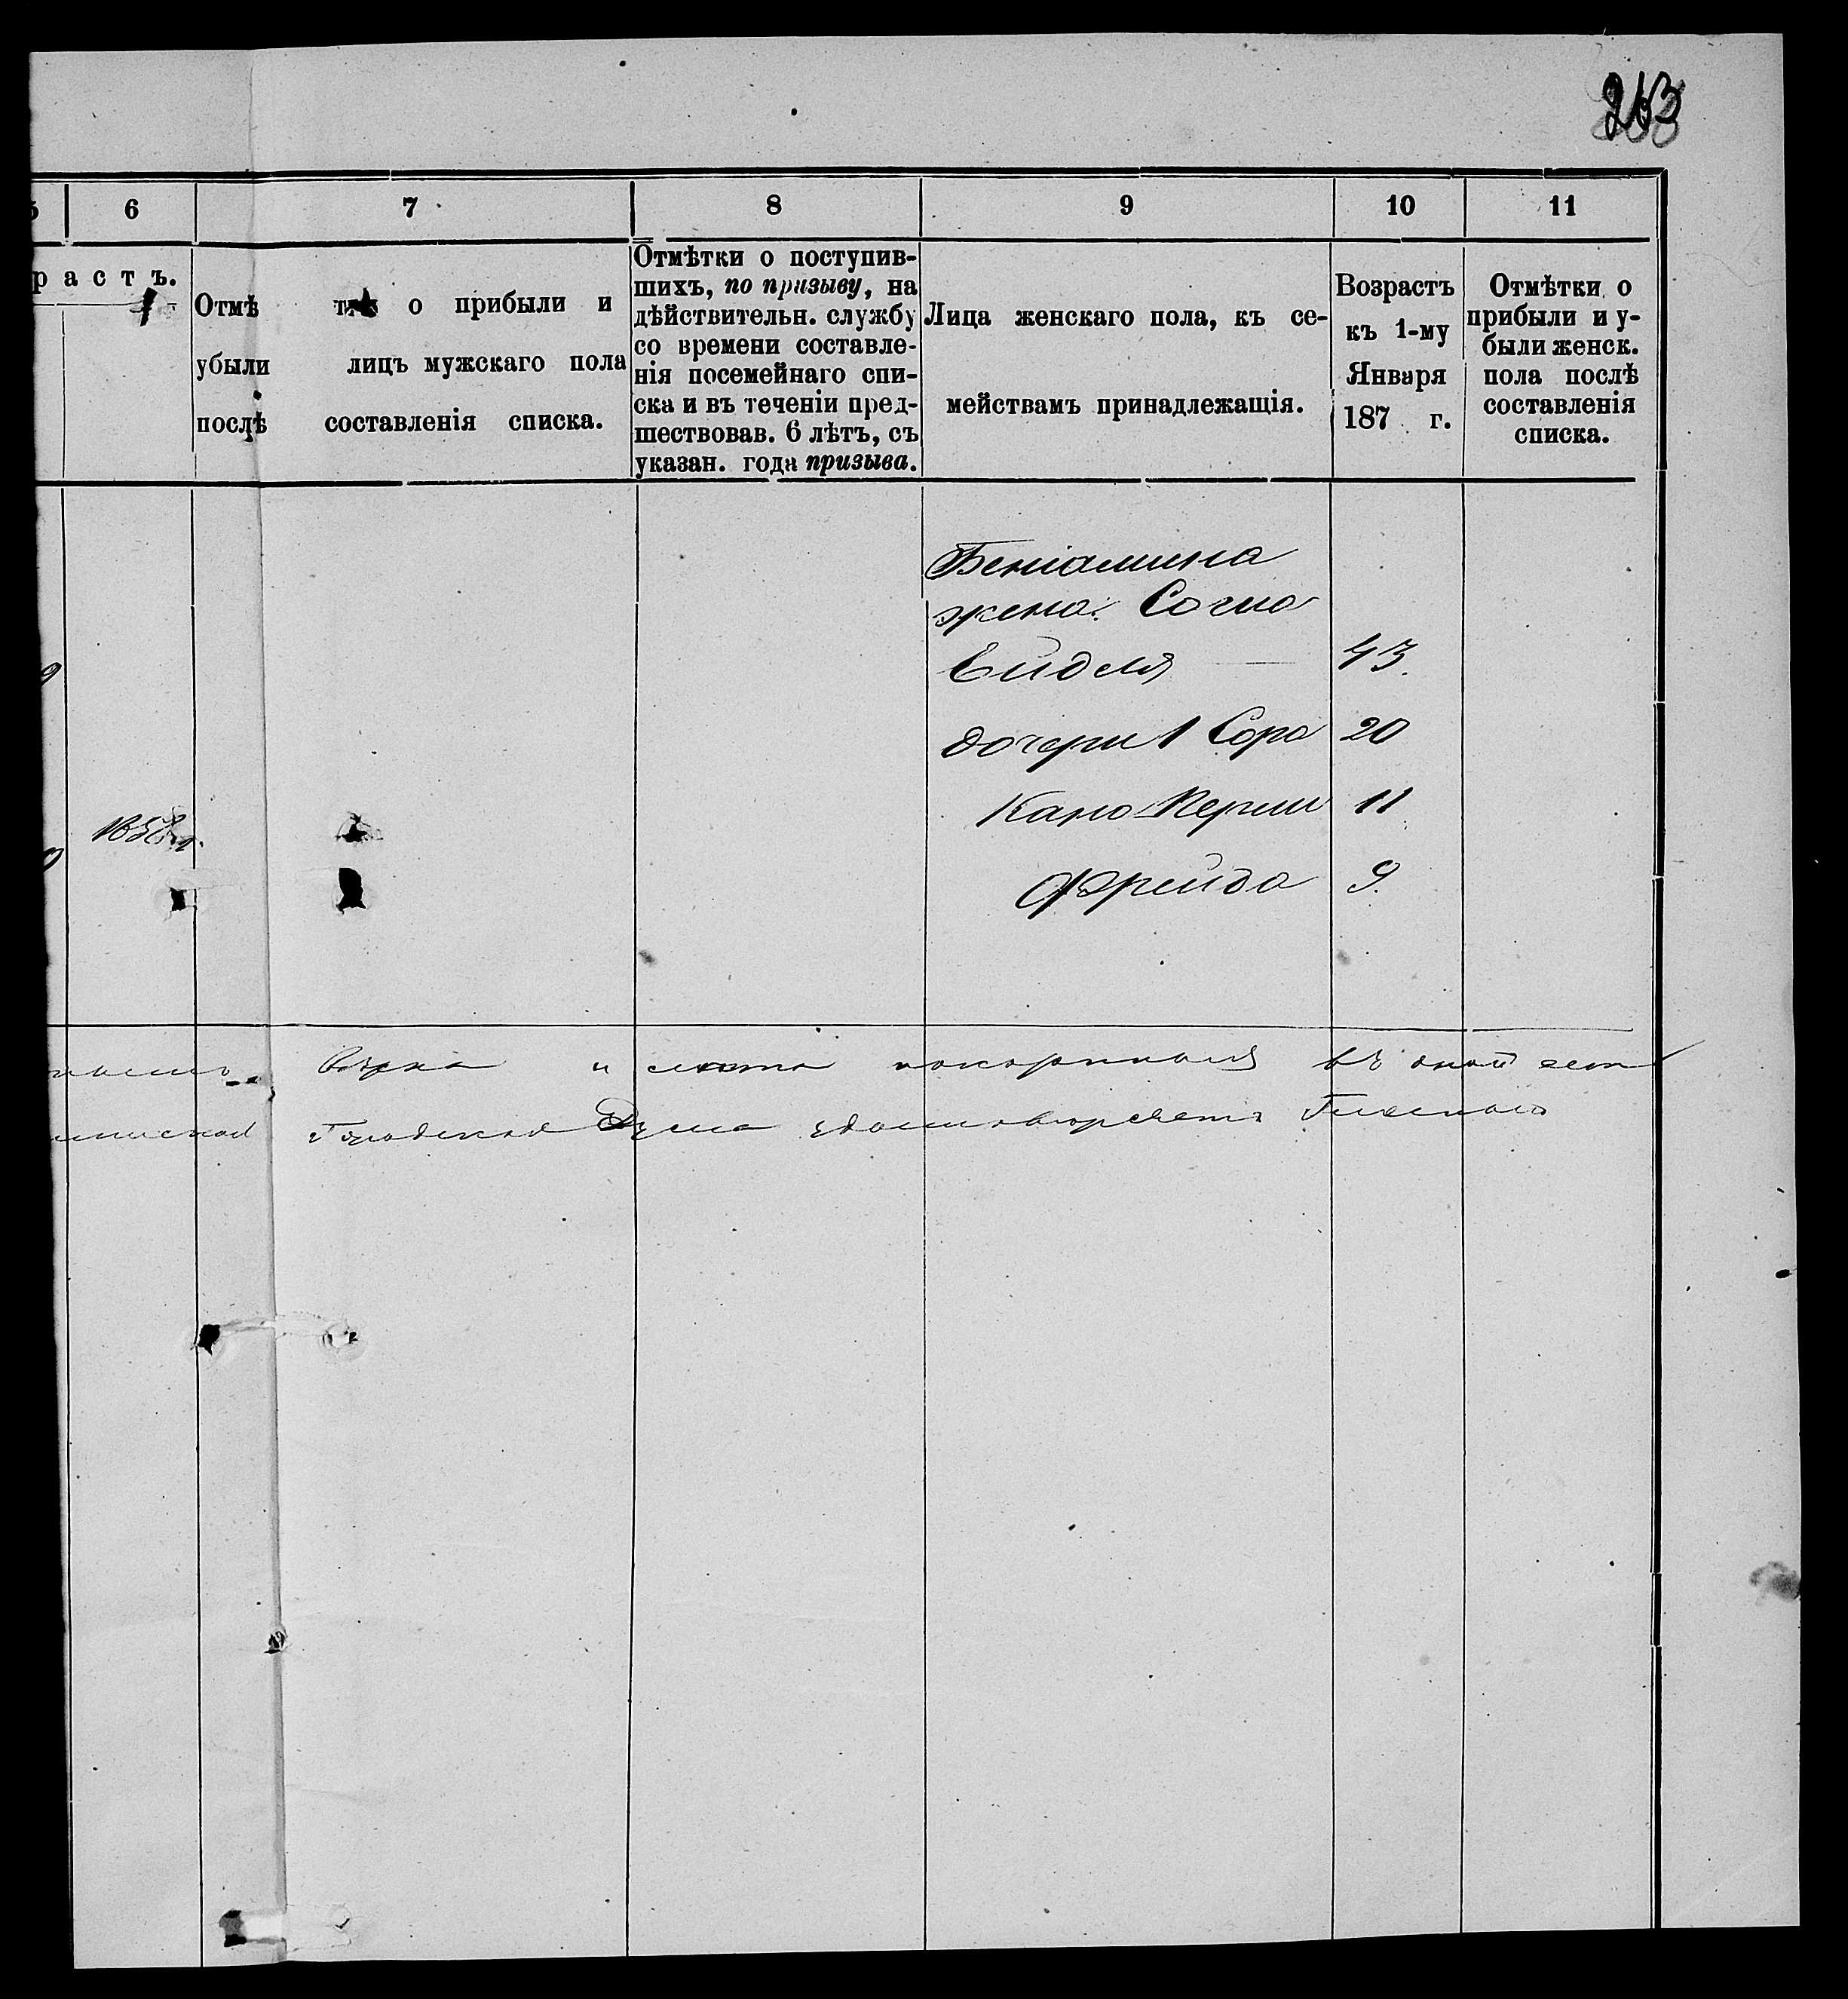 263
6 7 8 9 10 11
растъ.
Отмѣтки о прибыли и
убыли лицъ мужскаго пола
послѣ составленія списка.
Отмѣтки о поступив-
шихъ, по призыву, на
дѣйствительн. службу
со времени составле-
нія посемейнаго спи-
ска и въ теченіи пред-
шествовав. 6 лѣтъ, съ
указан. года призыва.
Лица женскаго пола, къ се-
мействамъ принадлежащія.
Возрастъ
къ 1-му
Января
187 г.
Отмѣтки о
прибыли и у-
были женск.
пола послѣ
составленія
списка.
Беніамина
жена
Ейделя 43.
дочери 1 Сора 20
11
Фрейда 9.
и въ оной
Городская Дума удостовѣряетъ